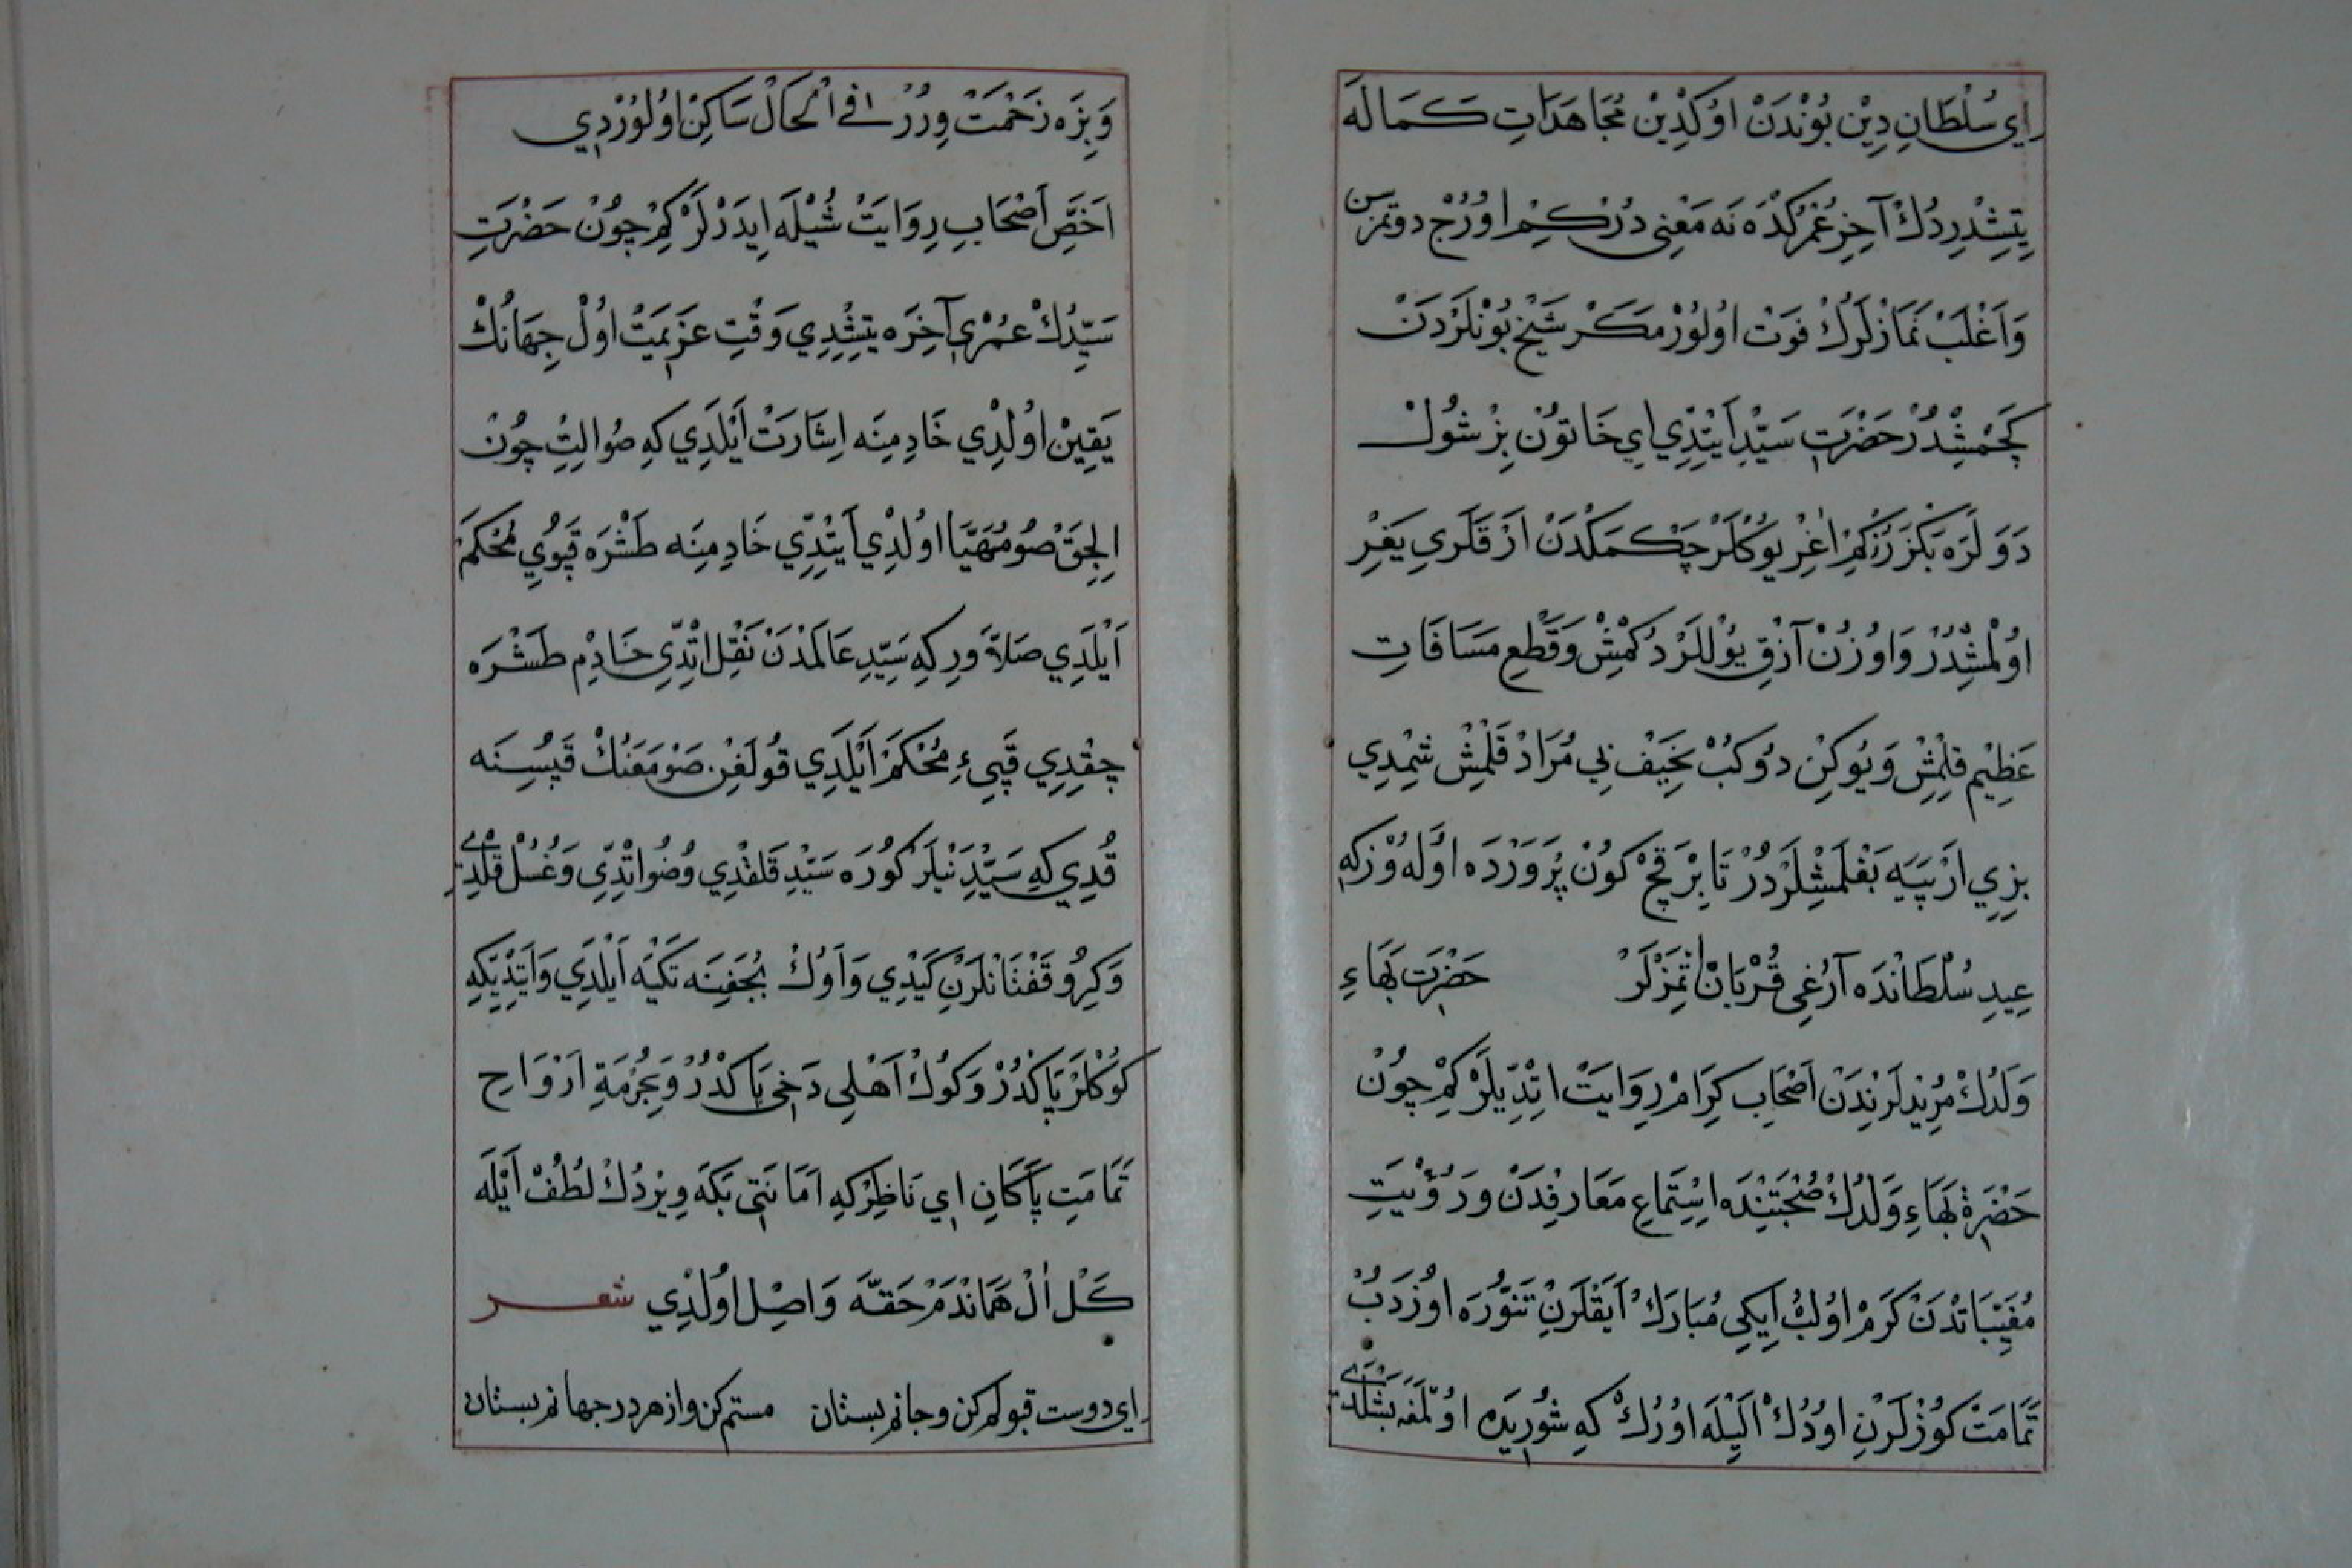 اِي سُلْطَانِ دِيْن بُوْنْدَنْ اوُكْدِيْنْ مُجَاهَدَاتِ كَمَالَه
يِتِشْدِرِدُكْ آخِرِ عُمْرُكْدَه نَه مَعْنِى دُرْ كِمْ اوُرُجْ دوتمزسن
وَاَغْلَبْ نَمَازْلَرُكْ فَوَتْ اوُلوُرْ مَكَرْ شَيْخ بُوْنْلَرْدَنْ
كَچْمِشْدُرْ حَضْرَتِ سَيِّدْ اَيِتْدِّي اِي خَاتوُنْ بِزْ شوُلْ
دَوَلَرَه بَكْزَرُزْ كِمْ اَغِرْ يوُكْلَرْ چَكْمَكْدَنْ اَرْقَلَرِي يَغِرْ
اوُلْمِشْدُرْ وَاوُزُنْ آزْقِ يوُللَرْ دُكْمِشْ وَقَطْعِ مَسَافَاتِ
عَظِيْم قِلْمِشْ وَيوُكِنْ دوُكُبْ نَحِيْف بِي مُرَادْ قَلْمِشْ شِمْدِي
بِزِي اَرْپَيَه بَغْلَمِشْلَرْدُرْ تَا بِرْ قَچْ كوُنْ پَرْوَرْدَه اوُلَه وُزْ كِه
عِيدِ سُلْطَانْدَه آرُغِى قُرْبَانْ اتْمَزْلَرْ حَضْرَتِ بَهَاءِ
وَلَدُكْ مُرِيْدلَرِنْدَنْ اَصْحَابِ كِرَامْ رِوَايَتْ اتْدِّيلَرْ كِمْ چوُنْ
حَضْرَةِ بَهَاءِ وَلَدُكْ صُحْبَتِنْدَه اِسْتِمَاعِ مَعَارِفْدَنْ وَرُؤْيَتِ
مُغَيَّبَاتْدَنْ كَرَمْ اوُلُبْ اِيكِى مُبَارَكْ اَيَقْلَرِنْ تَنوُّرَه اوُزَدُبْ
تَمَامَتْ كوُزْلَرْنِ اوُدُكْ اَلَيْلَه اوُرُكْ كِه شوُرِيَدِه اوُلْمَغَه بَشْلَدِي
وَبِزَه زَحْمَتْ وِرُرْ فِي اَلْحَالْ سَاكِنْ اوُلوُرْدِي
اَخَصِّ اَصْحَابِ رِوَايَتْ شُيْلَه اِيدَرْلَرْ كِمْ چوُنْ حَضْرَتِ
سَيِّدُكْ عُمْرِي آخِرَه يِتِشْدِي وَقْتِ عَزِيمَتْ اوُلْ جِهَانُكْ
يَقِيْنْ اوُلْدِي خَادِمِنَه اِشَارَتْ اَيْلَدِي كِه صُوالِتِ چوُنْ
اِلِجِقْ صُو مُهَيَّا اوُلْدِي اَيِتْدِّي خَادِمِنَه طَشْرَه قَپوُيِ مُحْكَمْ
اَيْلَدِي صَلاَة وَرِ كِه سَيِّدِ عَالَمْدَنْ نَقْل اتْدِّى خَادِمْ طَشْرَه
چِقْدِي قَپِىءِ مُحْكَمْ اَيْلَدِي قُولَغِنْ صَوْمَعَنُكْ قَپُسِنَه
قُدِي كِه سَيِّدْ نَيْلَرْ كوُرَه سَيِّدْ قَلقْدِي وُضُو اتْدِّى وَغُسْل قِلْدِي
وَكِرُو قَفْتَانْلَرِنْ كَيْدِي وَاَوُكْ بُجَغِنَه تَكْيَه اَيْلَدِي وَاَيِتْدِّيكِه
كوُكْلَرْ پَاكْدُرْ وَكوُكْ اَهْلِى دَخِى پَاكْدُرْ وَبِحُرْمَةِ اَرْوَاحِ
تَمَامَتِ پَاكَانِ اِي نَاظِرْ كِه اَمَانَتِى بَكَه وِيرْدُكْ لُطْفْ اَيْلَه
كَلْ اَلْ هَمَانْدَمْ حَقَّه وَاصِل اوُلْدِي شعر
اى دوست قبولم كن و جانم بستان مستم كن و از هر دو جهانم بستان